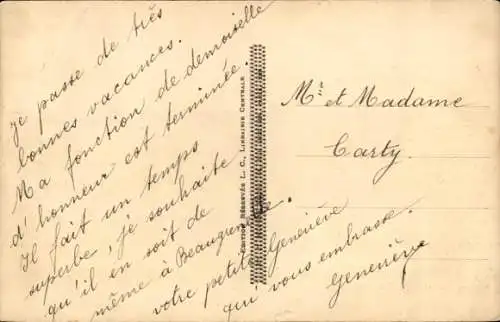 Je passe de très
bonnes vacances.
Ma fonction de demoiselle
d'honneur est terminée.
Il fait un temps
superbe, je souhaite
qu'il en soit de
même à Beaugency.
votre petite Geneviève
qui vous embrasse.
Geneviève
EDITION RÉSERVÉE L. C., LIBRAIRIE CENTRALE
Mr et Madame
Carty.